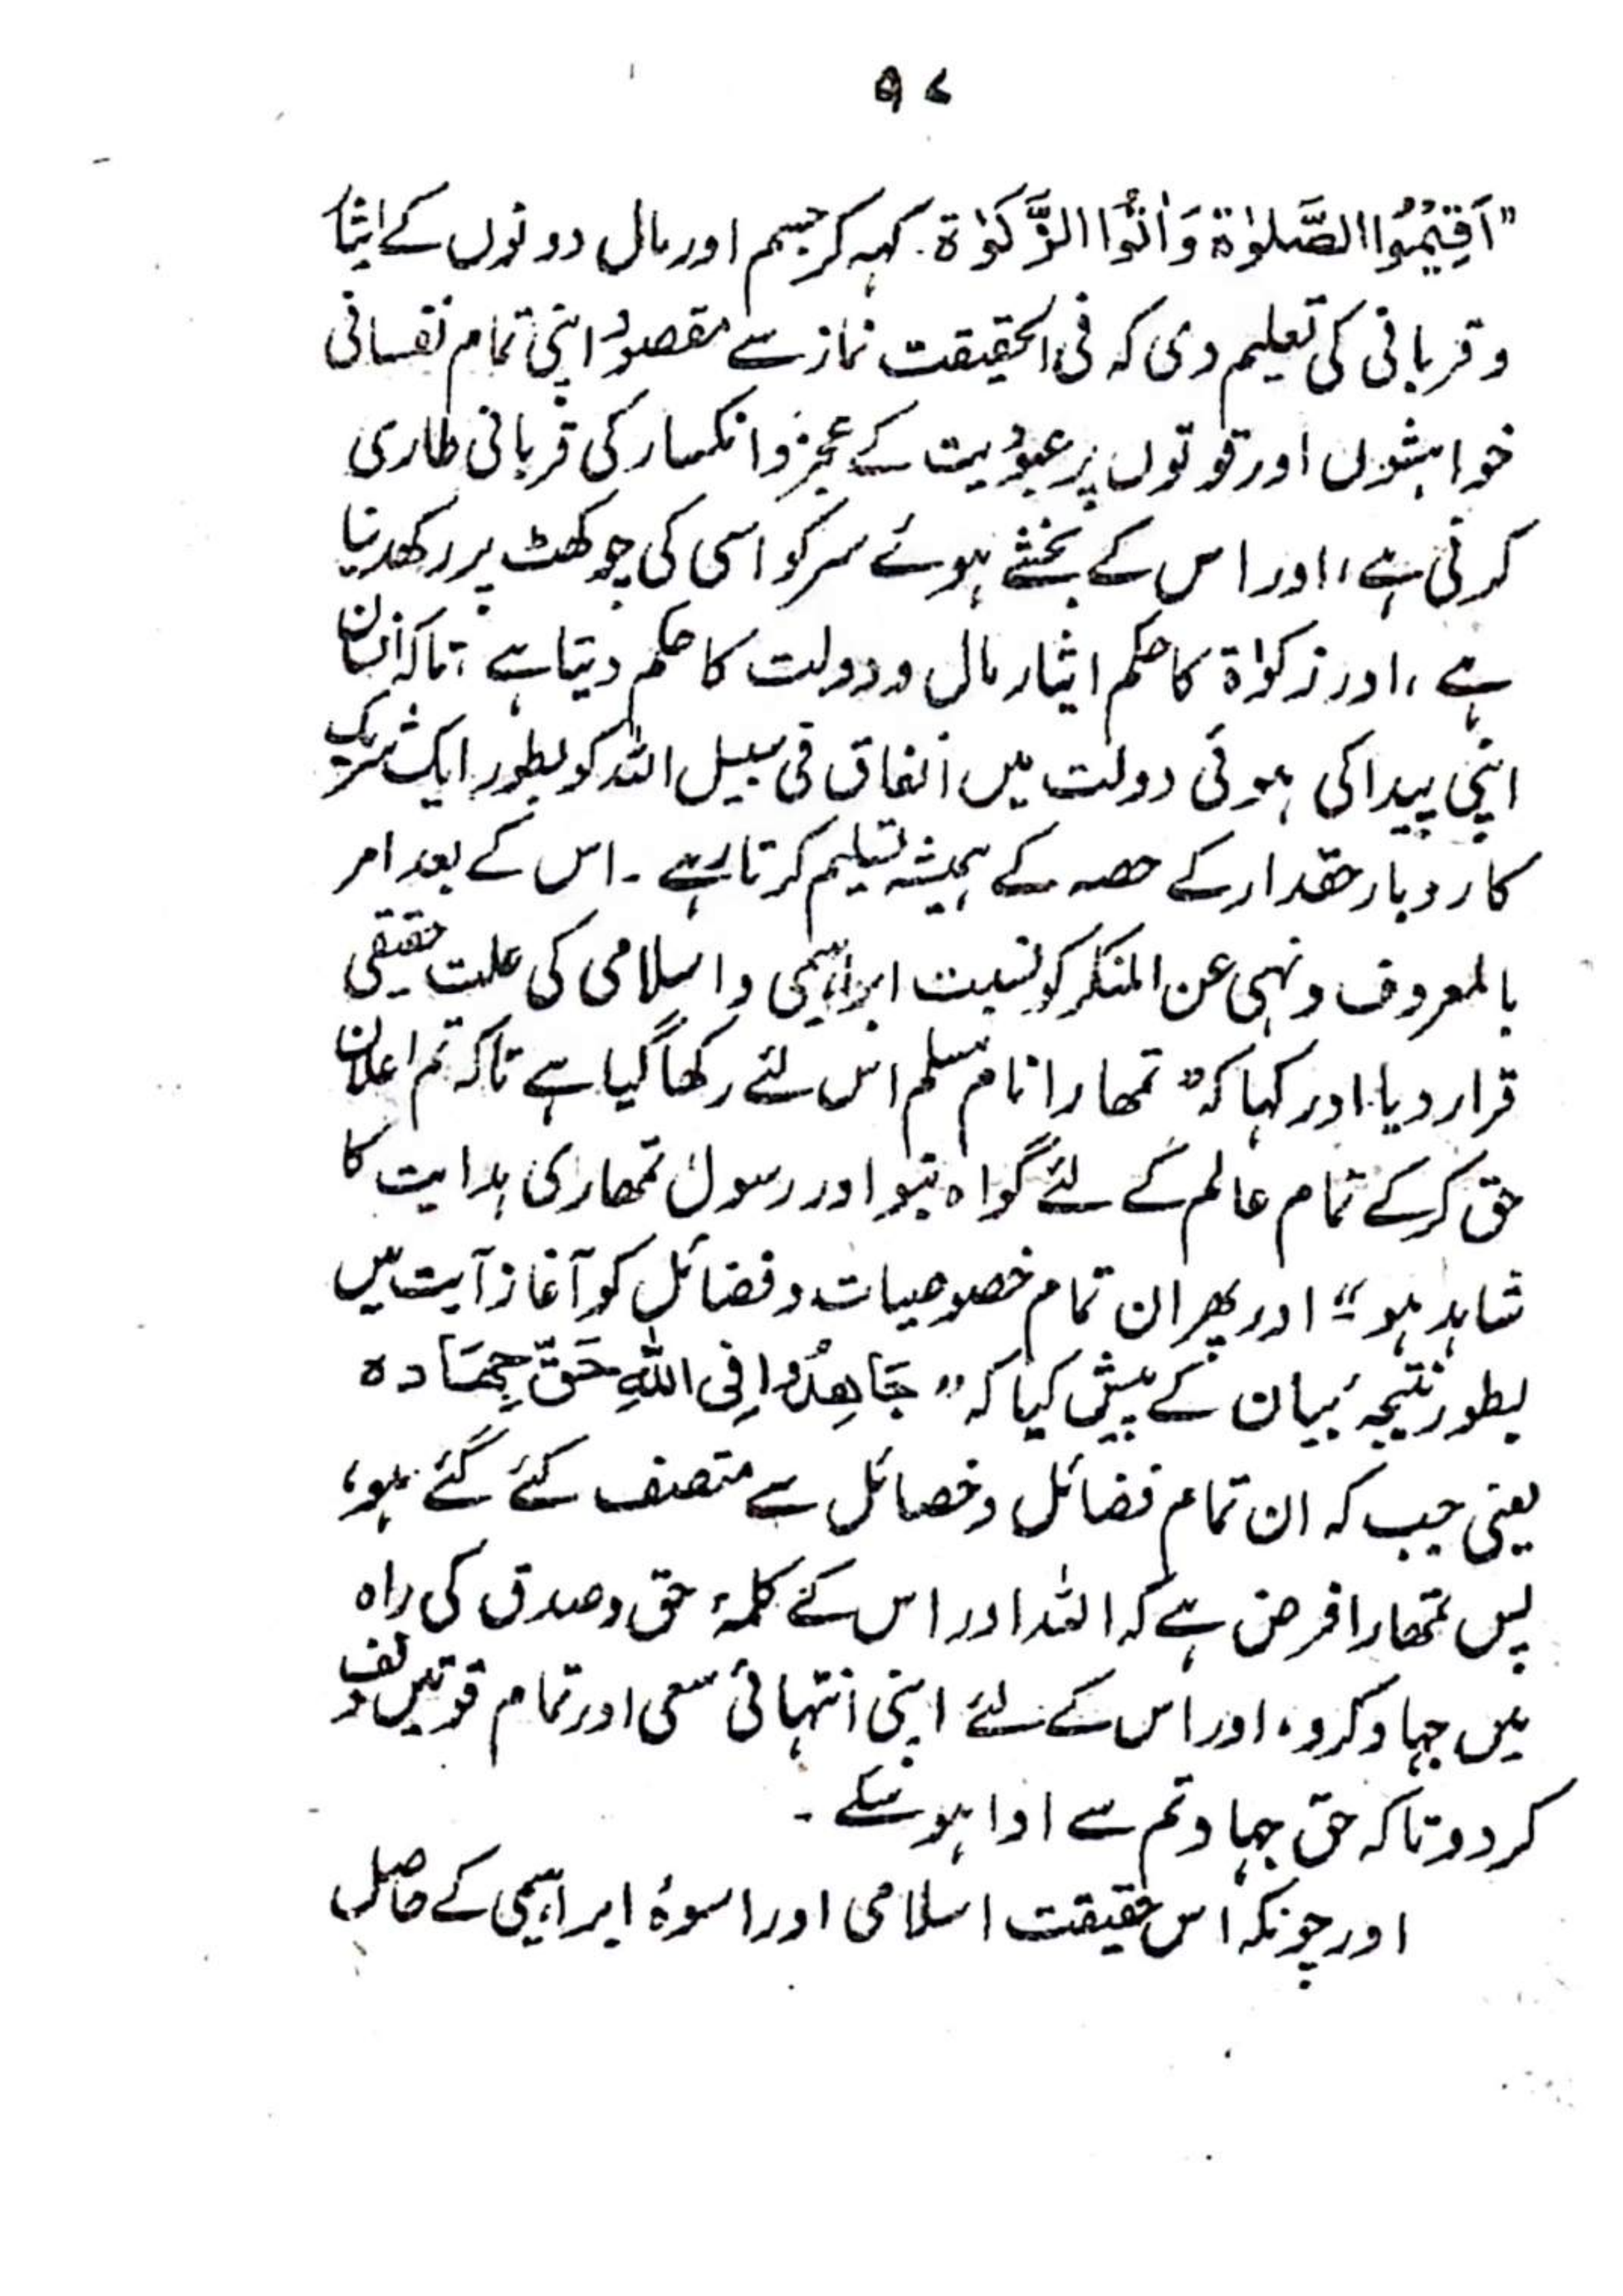 ۵۷
"اَقِیْمُوا الصَّلوٰۃ وَاٰتُوا الزَّکوٰۃ۔ کہہ کر جسم اور مال دونوں کے ایثار
و قربانی کی تعلیم دی کہ فی الحقیقت نماز سے مقصود اپنی تمام نفسانی
خواہشوں اور قوتوں پر عبودیت کے عجز و انکسار کی قربانی طاری
کرنی ہے، اور اس کے بخشے ہوئے سر کو اسی کی چوکھٹ پر رکھدینا
ہے، اور زکوٰۃ کا حکم ایثار مال و دولت کا حکم دیتا ہے، تاکہ انسان
اپنی پیدا کی ہوئی دولت میں انفاق فی سبیل اللہ کو بطور ایک شریک
کاروبار حقدار کے حصہ کے ہمیشہ تسلیم کرتا رہے۔ اس کے بعد امر
بالمعروف و نہی عن المنکر کو نسبت ابراہیمی و اسلامی کی علت حقیقی
قرار دیا اور کہا کہ "تمھارا نام مسلم اس لئے رکھا گیا ہے تاکہ تم اعلان
حق کرکے تمام عالم کے لئے گواہ بنو اور رسول تمھاری ہدایت کا
شاہد ہو"۔ اور پھر ان تمام خصوصیات و فضائل کو آغاز آیت میں
بطور نتیجۂ بیان کے پیش کیا کہ "جَاھِدُوا فِی اللّٰہِ حَقَّ جِھَادہ
یعنی جب کہ ان تمام فضائل و خصائل سے متصف کئے گئے ہو،
پس تمھارا فرض ہے کہ اللہ اور اس کے کلمۂ حق و صدق کی راہ
میں جہاد کرو، اور اس کے لئے اپنی انتہائی سعی اور تمام قوتیں وقف
کر دو تاکہ حق جہاد تم سے ادا ہو سکے۔
اور چونکہ اس حقیقت اسلامی اور اسوۂ ابراہیمی کے حاصل